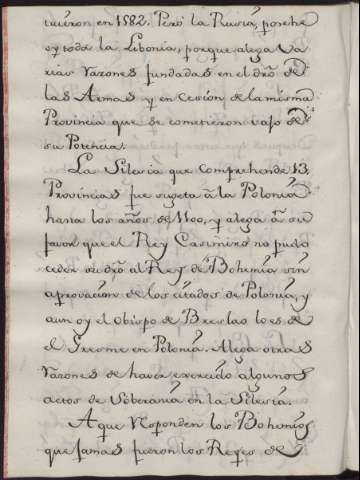 tuieron en 1582. Pero la Rusia, posehe
oy toda la Libonia, porque alega va
rias razones fundadas en el dro. de
las Armas y en cesion de la misma
Provincia que se cometieron vajo de
su Potencia.
La Silesia que comprehende 13
Provincias fue sugeta â la Polonia
hasta los años de 1400, y alega â su
favor que el Rey Casimiro no pudo
ceder su dro. al Rey de Bohemia sin
aprovacion de los estados de Polonia, y
aun oy el obispo de Breslao lo es de
el Gresme en Polonia. Alega otras
razones de haver exercido algunos
actos de Soberania en la Silesia.
A que responden los Bohemios
que jamas fueron los Reyes de